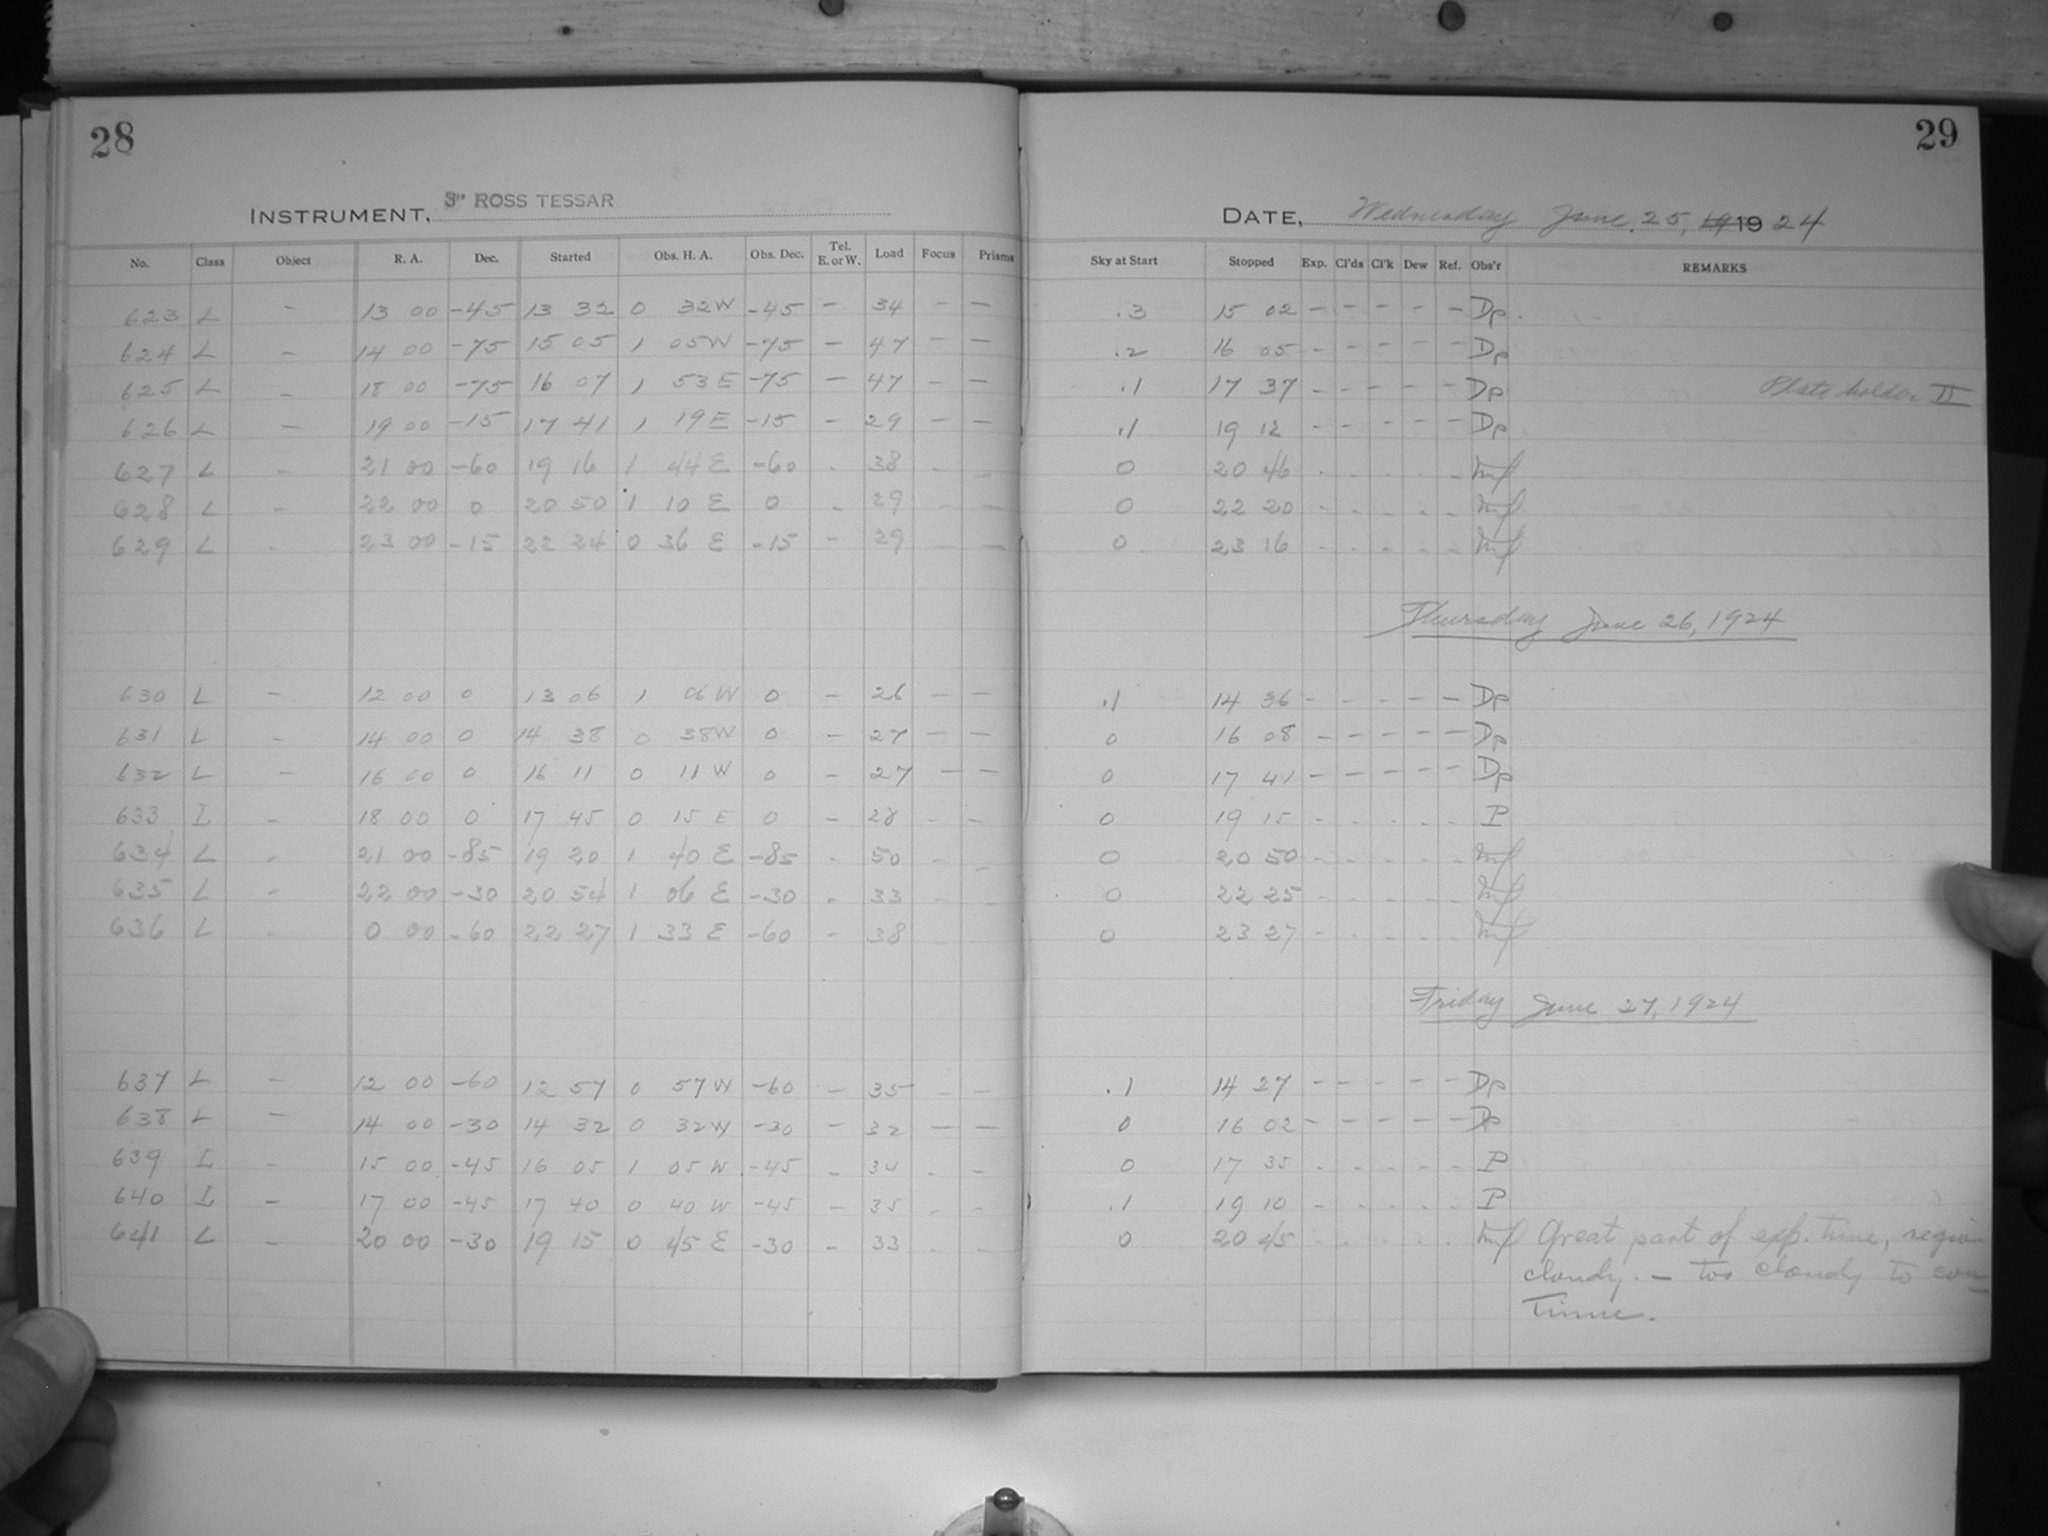 28
29
INSTRUMENT, 3" ROSS TESSAR
DATE, Wednesday June 25, 19 24
No. Class Object R. A. Dec. Started Obs. H. A. Obs. Dec. Tel. E. or W. Load Focus Prisms Sky at Start Stopped Exp. Cl'ds Cl'k Dew Ref. Obs'r REMARKS
623 L - 13 00 -45 13 32 0 32 W -45 - 34 - - .3 15 02 - - - - - Dp.
624 L - 14 00 -75 15 05 1 05 W -75 - 47 - - .2 16 05 - - - - - Dp
625 L - 18 00 -75 16 07 1 53 E -75 - 47 - - .1 17 37 - - - - - Dp Plate holder II
626 L - 19 00 -15 17 41 1 19 E -15 - 29 - - .1 19 12 - - - - - Dp
627 L - 21 00 -60 19 16 1 44 E -60 - 38 - - 0 20 46 - - - - -
628 L - 22 00 0 20 50 1 10 E 0 - 29 - - 0 22 20 - - - - -
629 L - 23 00 -15 22 24 0 36 E -15 - 29 - - 0 23 16 - - - - -
Thursday June 26, 1924
630 L - 12 00 0 13 06 1 06 W 0 - 26 - - .1 14 36 - - - - - Dp
631 L - 14 00 0 14 38 0 38 W 0 - 27 - - 0 16 08 - - - - - Dp
632 L - 16 00 0 16 11 0 11 W 0 - 27 - - 0 17 41 - - - - - Dp
633 L - 18 00 0 17 45 0 15 E 0 - 28 - - 0 19 15 - - - - - P
634 L - 21 00 -85 19 20 1 40 E -85 - 50 - - 0 20 50 - - - - -
635 L - 22 00 -30 20 54 1 06 E -30 - 33 - - 0 22 25 - - - - -
636 L - 0 00 -60 22 27 1 33 E -60 - 38 - - 0 23 27 - - - - -
Friday June 27, 1924
637 L - 12 00 -60 12 57 0 57 W -60 - 35 - - .1 14 27 - - - - - Dp
638 L - 14 00 -30 14 32 0 32 W -30 - 32 - - 0 16 02 - - - - - Dp
639 L - 15 00 -45 16 05 1 05 W -45 - 34 - - 0 17 35 - - - - - P
640 L - 17 00 -45 17 40 0 40 W -45 - 35 - - .1 19 10 - - - - - P
641 L - 20 00 -30 19 15 0 45 E -30 - 33 - - 0 20 45 - - - - - Great part of exp. time, region
cloudy. - too cloudy to con-
tinue.